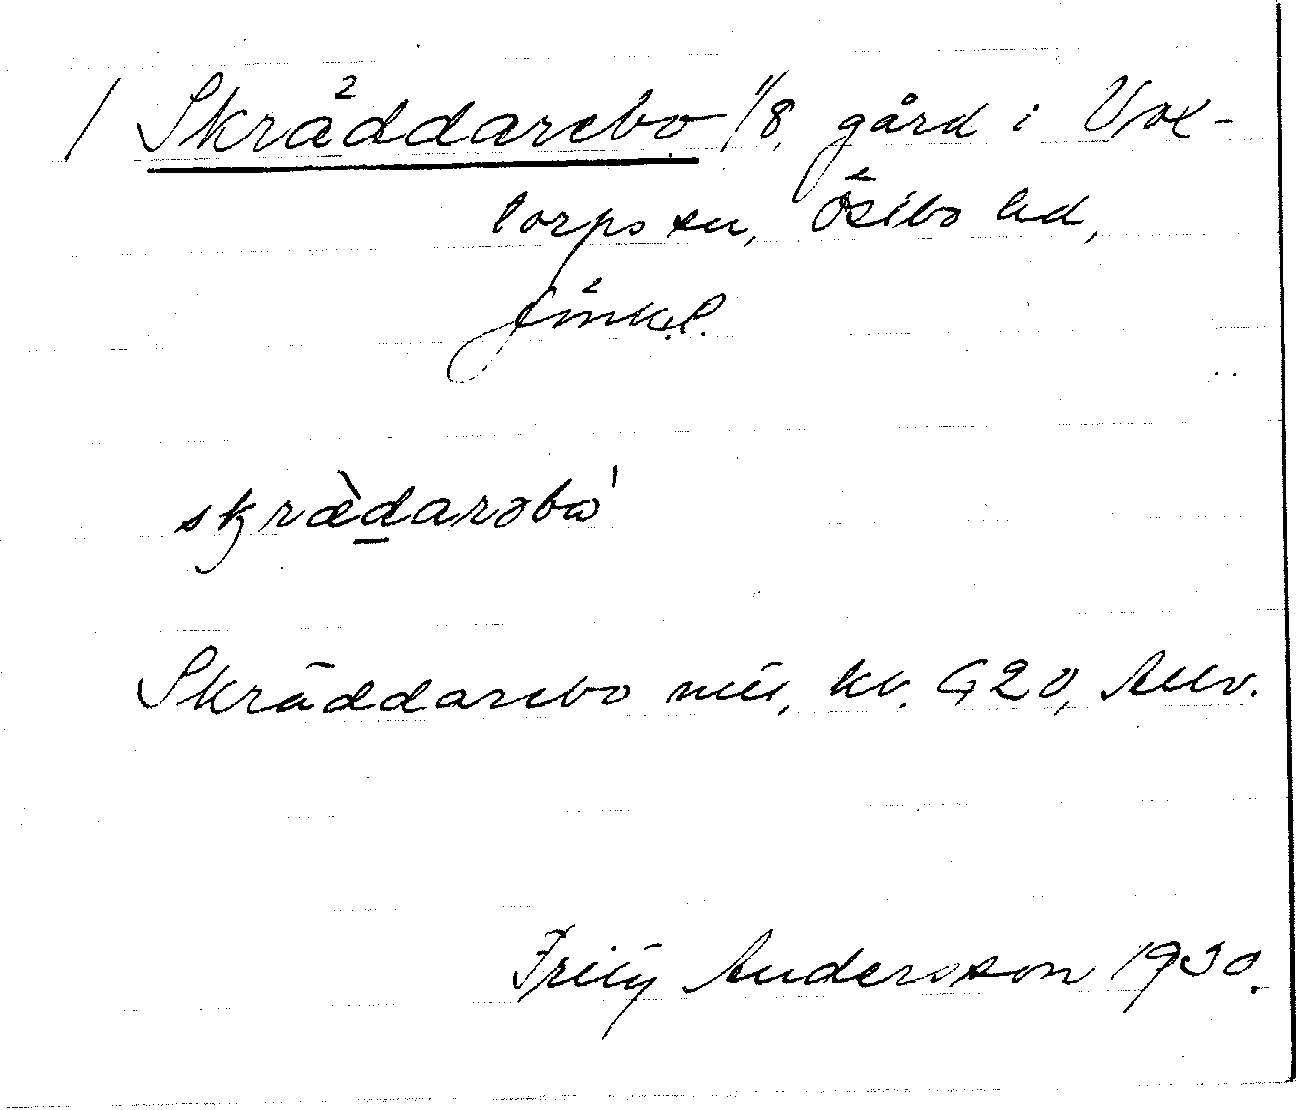 / Skräddarebo 1/8, gård i Vox-
torps sn, Östbo hd,
Jönk.l.
skrædarəbo
Skräddarebo kv. G20,
Fritz Andersson 1930.